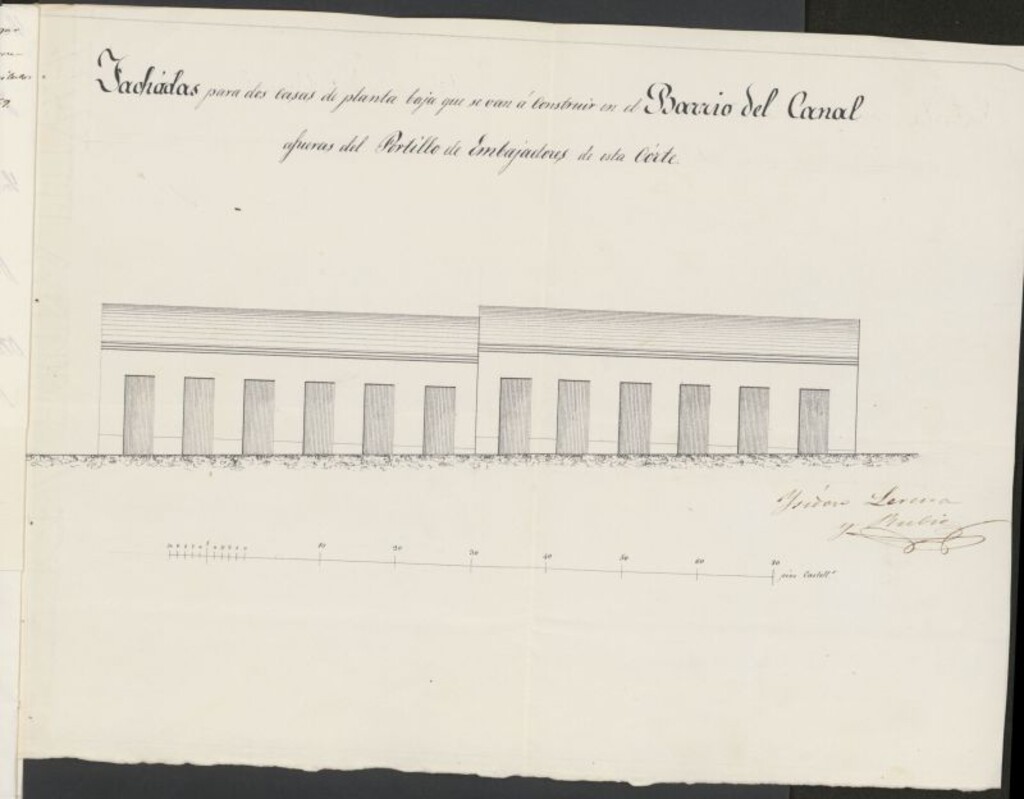 Fachadas para dos casas de planta baja que se van á Construir en el Barrio del Canal
afueras del Portillo de Embajadores de esta Córte.
Ysidoro Lerena
y Rubio
10 20 30 40 50 60 70 pies Castell.s